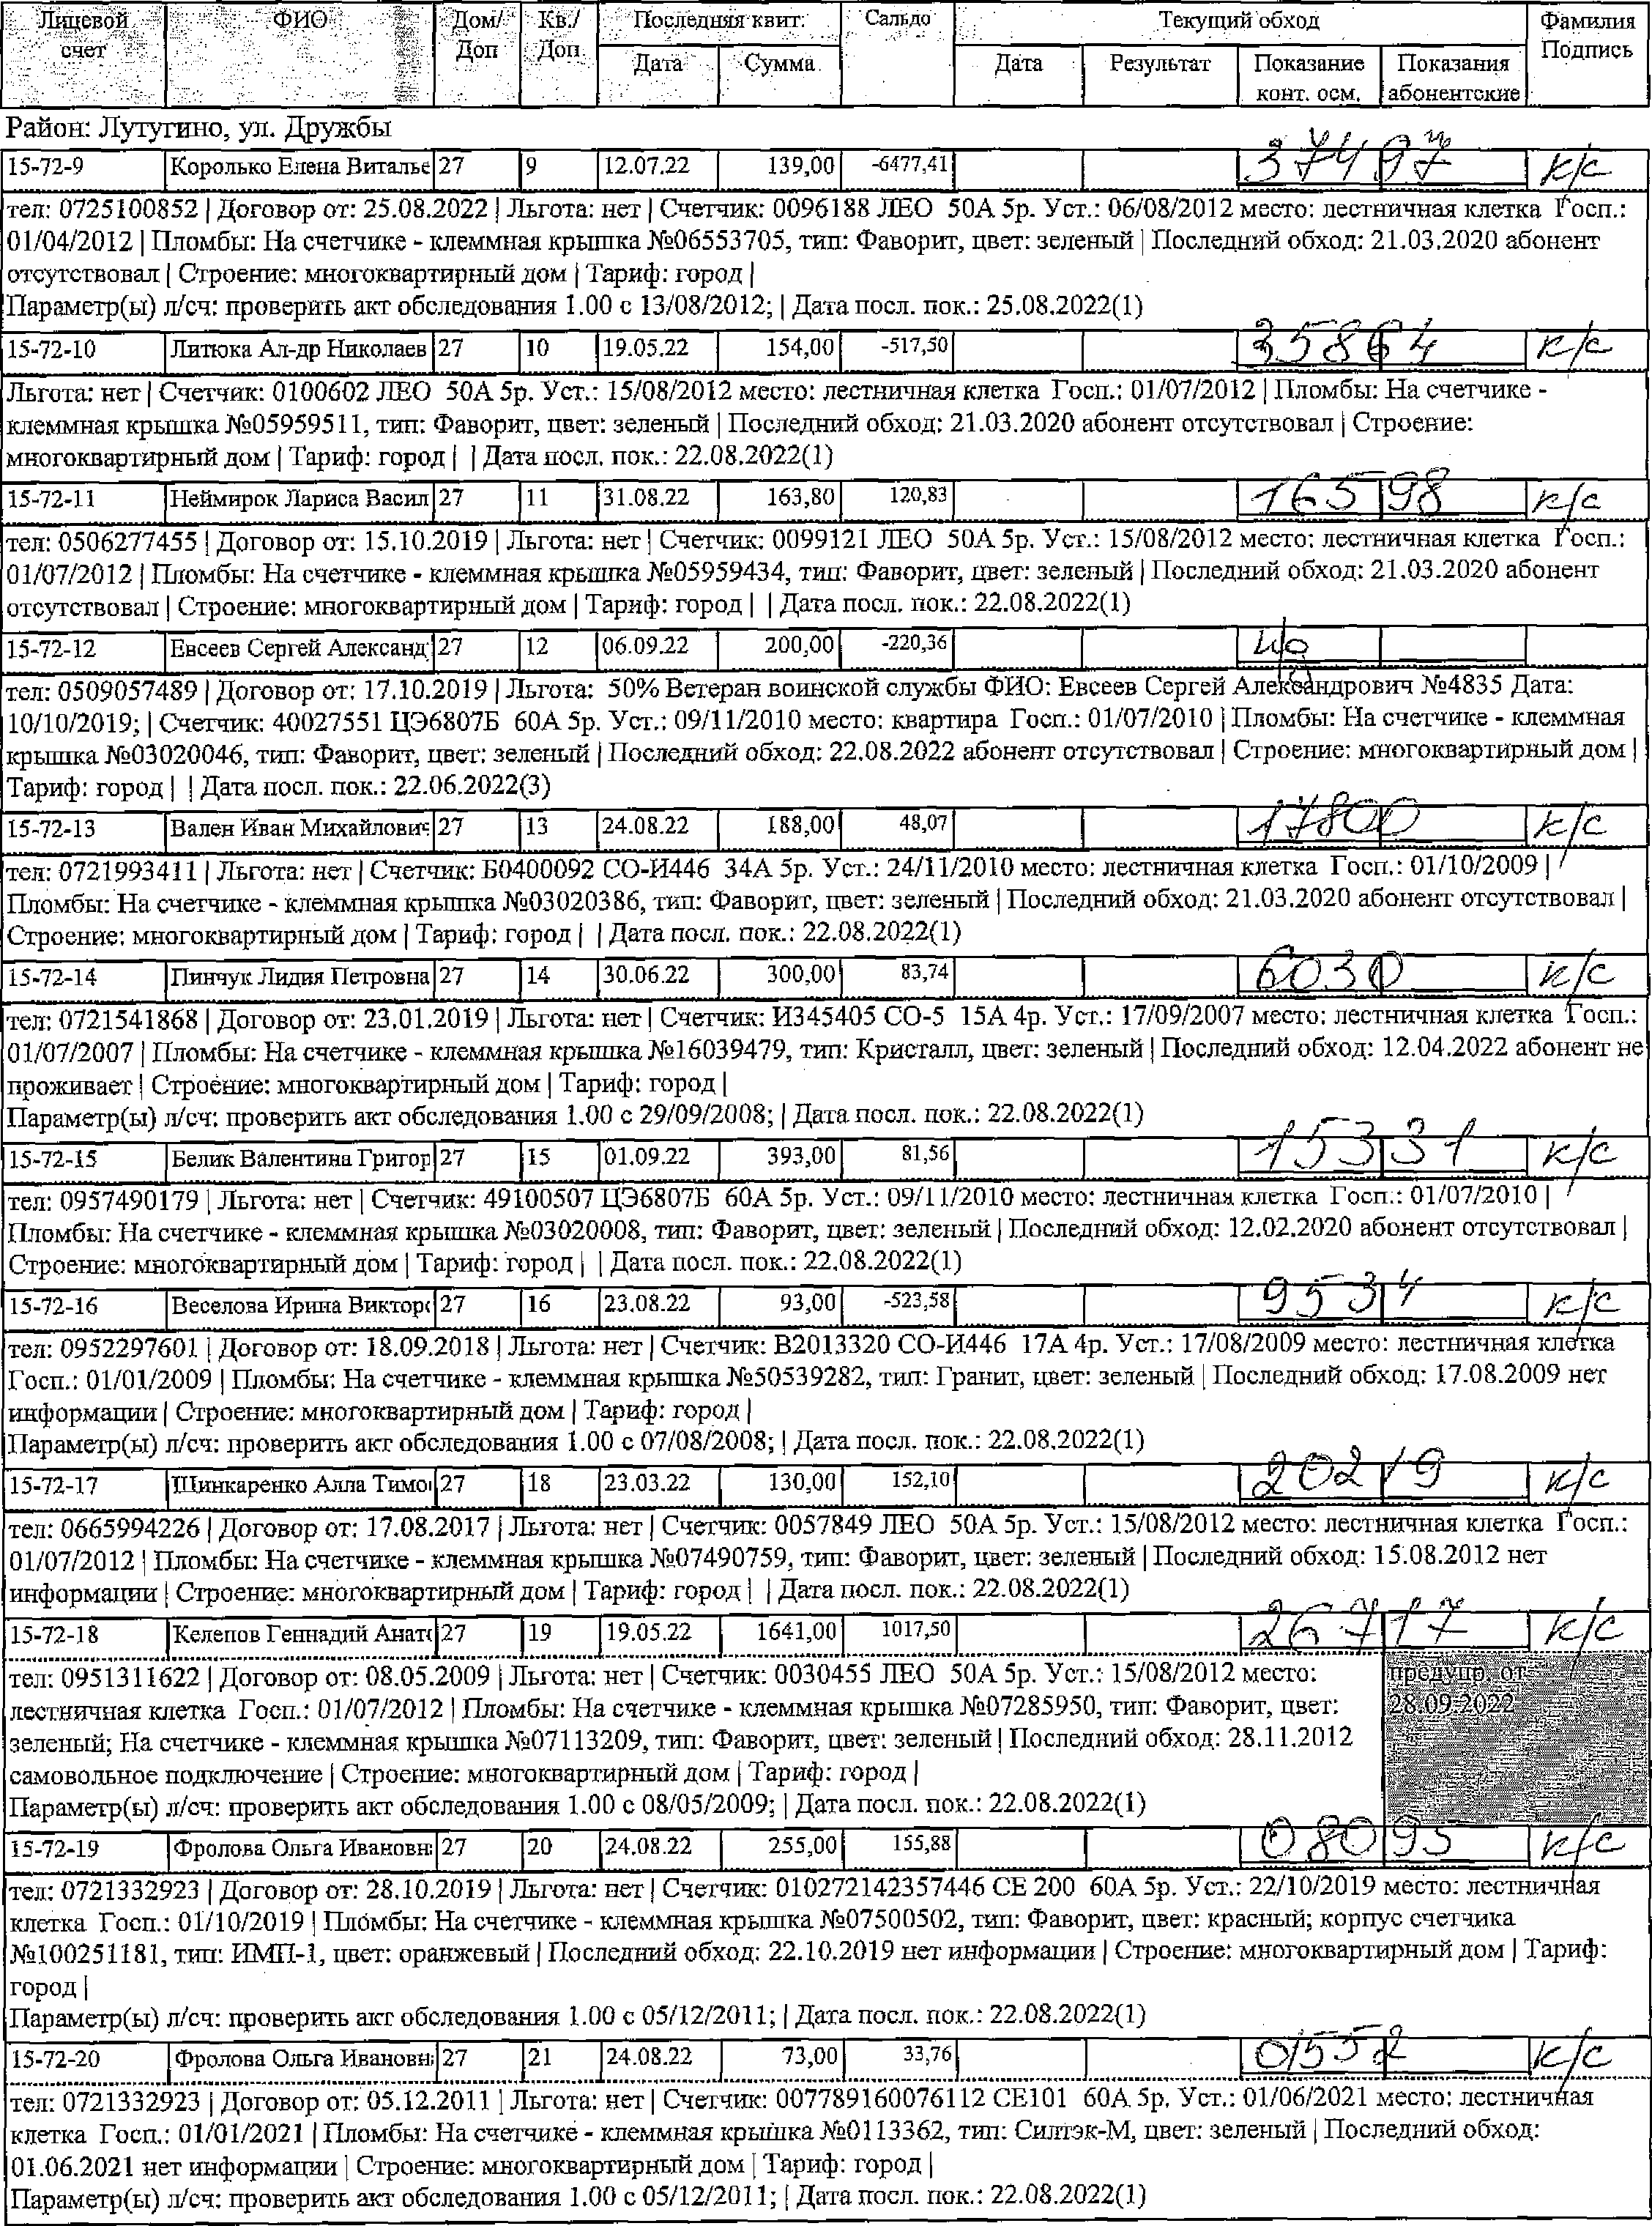 Лицевой счет | ФИО | Дом/Доп | Кв./Доп | Последняя квит. | Сальдо | Текущий обход | Фамилия Подпись
Дата | Сумма | Дата | Результат | Показание конт. осм. | Показания абонентские
Район: Лутугино, ул. Дружбы
15-72-9 | Королько Елена Виталье | 27 | 9 | 12.07.22 | 139,00 | -6477,41 | 37497 | к/с
тел: 0725100852 | Договор от: 25.08.2022 | Льгота: нет | Счетчик: 0096188 ЛЕО 50А 5р. Уст.: 06/08/2012 место: лестничная клетка Госп.:
01/04/2012 | Пломбы: На счетчике - клеммная крышка №06553705, тип: Фаворит, цвет: зеленый | Последний обход: 21.03.2020 абонент
отсутствовал | Строение: многоквартирный дом | Тариф: город |
Параметр(ы) л/сч: проверить акт обследования 1.00 с 13/08/2012; | Дата посл. пок.: 25.08.2022(1)
15-72-10 | Литюка Ал-др Николаев | 27 | 10 | 19.05.22 | 154,00 | -517,50 | 35864 | к/с
Льгота: нет | Счетчик: 0100602 ЛЕО 50А 5р. Уст.: 15/08/2012 место: лестничная клетка Госп.: 01/07/2012 | Пломбы: На счетчике -
клеммная крышка №05959511, тип: Фаворит, цвет: зеленый | Последний обход: 21.03.2020 абонент отсутствовал | Строение:
многоквартирный дом | Тариф: город | | Дата посл. пок.: 22.08.2022(1)
15-72-11 | Неймирок Лариса Васил | 27 | 11 | 31.08.22 | 163,80 | 120,83 | 16598 | к/с
тел: 0506277455 | Договор от: 15.10.2019 | Льгота: нет | Счетчик: 0099121 ЛЕО 50А 5р. Уст.: 15/08/2012 место: лестничная клетка Госп.:
01/07/2012 | Пломбы: На счетчике - клеммная крышка №05959434, тип: Фаворит, цвет: зеленый | Последний обход: 21.03.2020 абонент
отсутствовал | Строение: многоквартирный дом | Тариф: город | | Дата посл. пок.: 22.08.2022(1)
15-72-12 | Евсеев Сергей Александ | 27 | 12 | 06.09.22 | 200,00 | -220,36
тел: 0509057489 | Договор от: 17.10.2019 | Льгота: 50% Ветеран воинской службы ФИО: Евсеев Сергей Александрович №4835 Дата:
10/10/2019; | Счетчик: 40027551 ЦЭ6807Б 60А 5р. Уст.: 09/11/2010 место: квартира Госп.: 01/07/2010 | Пломбы: На счетчике - клеммная
крышка №03020046, тип: Фаворит, цвет: зеленый | Последний обход: 22.08.2022 абонент отсутствовал | Строение: многоквартирный дом |
Тариф: город | | Дата посл. пок.: 22.06.2022(3)
15-72-13 | Вален Иван Михайлович | 27 | 13 | 24.08.22 | 188,00 | 48,07 | 17800 | к/с
тел: 0721993411 | Льгота: нет | Счетчик: Б0400092 СО-И446 34А 5р. Уст.: 24/11/2010 место: лестничная клетка Госп.: 01/10/2009 |
Пломбы: На счетчике - клеммная крышка №03020386, тип: Фаворит, цвет: зеленый | Последний обход: 21.03.2020 абонент отсутствовал |
Строение: многоквартирный дом | Тариф: город | | Дата посл. пок.: 22.08.2022(1)
15-72-14 | Пинчук Лидия Петровна | 27 | 14 | 30.06.22 | 300,00 | 83,74 | 6030 | к/с
тел: 0721541868 | Договор от: 23.01.2019 | Льгота: нет | Счетчик: И345405 СО-5 15А 4р. Уст.: 17/09/2007 место: лестничная клетка Госп.:
01/07/2007 | Пломбы: На счетчике - клеммная крышка №16039479, тип: Кристалл, цвет: зеленый | Последний обход: 12.04.2022 абонент не
проживает | Строение: многоквартирный дом | Тариф: город |
Параметр(ы) л/сч: проверить акт обследования 1.00 с 29/09/2008; | Дата посл. пок.: 22.08.2022(1)
15-72-15 | Белик Валентина Григор | 27 | 15 | 01.09.22 | 393,00 | 81,56 | 15331 | к/с
тел: 0957490179 | Льгота: нет | Счетчик: 49100507 ЦЭ6807Б 60А 5р. Уст.: 09/11/2010 место: лестничная клетка Госп.: 01/07/2010 |
Пломбы: На счетчике - клеммная крышка №03020008, тип: Фаворит, цвет: зеленый | Последний обход: 12.02.2020 абонент отсутствовал |
Строение: многоквартирный дом | Тариф: город | | Дата посл. пок.: 22.08.2022(1)
15-72-16 | Веселова Ирина Викторо | 27 | 16 | 23.08.22 | 93,00 | -523,58 | 9534 | к/с
тел: 0952297601 | Договор от: 18.09.2018 | Льгота: нет | Счетчик: В2013320 СО-И446 17А 4р. Уст.: 17/08/2009 место: лестничная клетка
Госп.: 01/01/2009 | Пломбы: На счетчике - клеммная крышка №50539282, тип: Гранит, цвет: зеленый | Последний обход: 17.08.2009 нет
информации | Строение: многоквартирный дом | Тариф: город |
Параметр(ы) л/сч: проверить акт обследования 1.00 с 07/08/2008; | Дата посл. пок.: 22.08.2022(1)
15-72-17 | Шинкаренко Алла Тимо | 27 | 18 | 23.03.22 | 130,00 | 152,10 | 20219 | к/с
тел: 0665994226 | Договор от: 17.08.2017 | Льгота: нет | Счетчик: 0057849 ЛЕО 50А 5р. Уст.: 15/08/2012 место: лестничная клетка Госп.:
01/07/2012 | Пломбы: На счетчике - клеммная крышка №07490759, тип: Фаворит, цвет: зеленый | Последний обход: 15.08.2012 нет
информации | Строение: многоквартирный дом | Тариф: город | | Дата посл. пок.: 22.08.2022(1)
15-72-18 | Келепов Геннадий Анато | 27 | 19 | 19.05.22 | 1641,00 | 1017,50 | 26717 | к/с
тел: 0951311622 | Договор от: 08.05.2009 | Льгота: нет | Счетчик: 0030455 ЛЕО 50А 5р. Уст.: 15/08/2012 место: | предупр. от
лестничная клетка Госп.: 01/07/2012 | Пломбы: На счетчике - клеммная крышка №07285950, тип: Фаворит, цвет: | 28.09.2022
зеленый; На счетчике - клеммная крышка №07113209, тип: Фаворит, цвет: зеленый | Последний обход: 28.11.2012
самовольное подключение | Строение: многоквартирный дом | Тариф: город |
Параметр(ы) л/сч: проверить акт обследования 1.00 с 08/05/2009; | Дата посл. пок.: 22.08.2022(1)
15-72-19 | Фролова Ольга Ивановн | 27 | 20 | 24.08.22 | 255,00 | 155,88 | 08095 | к/с
тел: 0721332923 | Договор от: 28.10.2019 | Льгота: нет | Счетчик: 010272142357446 СЕ 200 60А 5р. Уст.: 22/10/2019 место: лестничная
клетка Госп.: 01/10/2019 | Пломбы: На счетчике - клеммная крышка №07500502, тип: Фаворит, цвет: красный; корпус счетчика
№100251181, тип: ИМП-1, цвет: оранжевый | Последний обход: 22.10.2019 нет информации | Строение: многоквартирный дом | Тариф:
город |
Параметр(ы) л/сч: проверить акт обследования 1.00 с 05/12/2011; | Дата посл. пок.: 22.08.2022(1)
15-72-20 | Фролова Ольга Ивановн | 27 | 21 | 24.08.22 | 73,00 | 33,76 | 01552 | к/с
тел: 0721332923 | Договор от: 05.12.2011 | Льгота: нет | Счетчик: 007789160076112 СЕ101 60А 5р. Уст.: 01/06/2021 место: лестничная
клетка Госп.: 01/01/2021 | Пломбы: На счетчике - клеммная крышка №0113362, тип: Силтэк-М, цвет: зеленый | Последний обход:
01.06.2021 нет информации | Строение: многоквартирный дом | Тариф: город |
Параметр(ы) л/сч: проверить акт обследования 1.00 с 05/12/2011; | Дата посл. пок.: 22.08.2022(1)